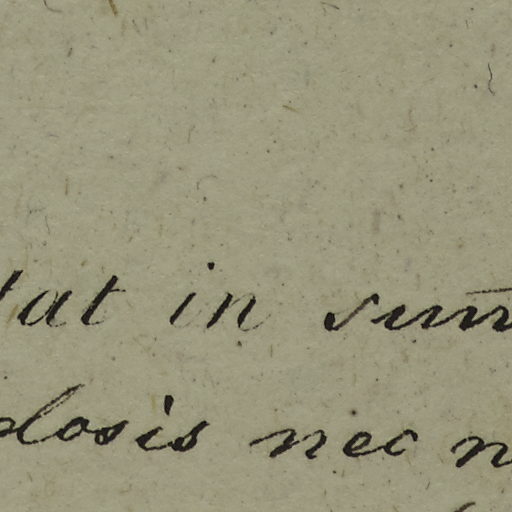 tat in sum̅
dosis nec n